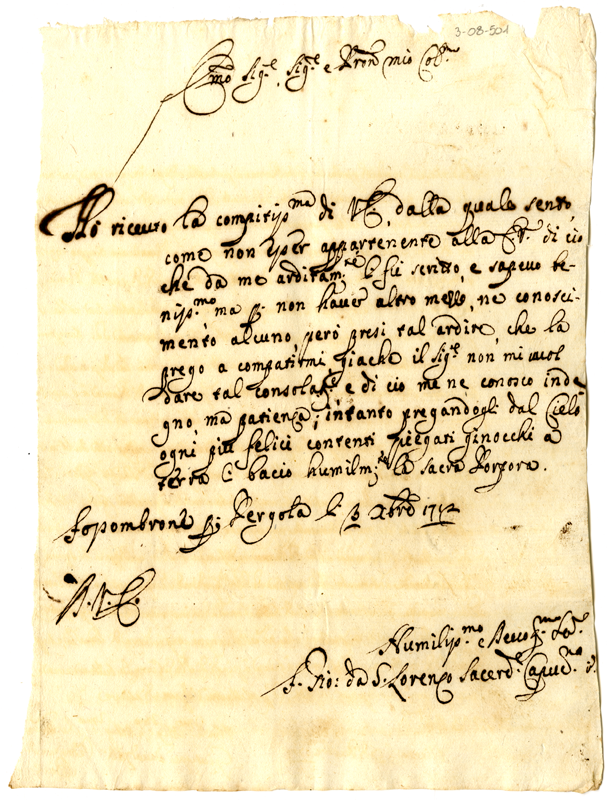 3-08-501
Emo Sig.e, Sig.e e Pron mio Col.
Hò riceuto la compitiss.ma di V.E. dalla quale sento
come non esser appartenente alla E.V. di ciò
che da me arditam.te li fù scritto, e sapevo be-
niss.mo ma p. non haver altro mezzo, ne conosci-
mento alcuno, però presi tal ardire, che la
prego a compatirmi, giache il Sig.e non mi vuol
dare tal consolaz.e e di ciò me ne conosco inde
gno, ma patienza; intanto pregandogli dal Cielo
ogni più felici contenti piegati ginocchi a
terra li bacio humilm.te la sacra Porpora.
Fopombrone p. Pergola li 3 Xbre 1712
D. V. E.
Humiliss.mo e
F. Gio: da S. Lorenzo Sacerd.e Capuc.no